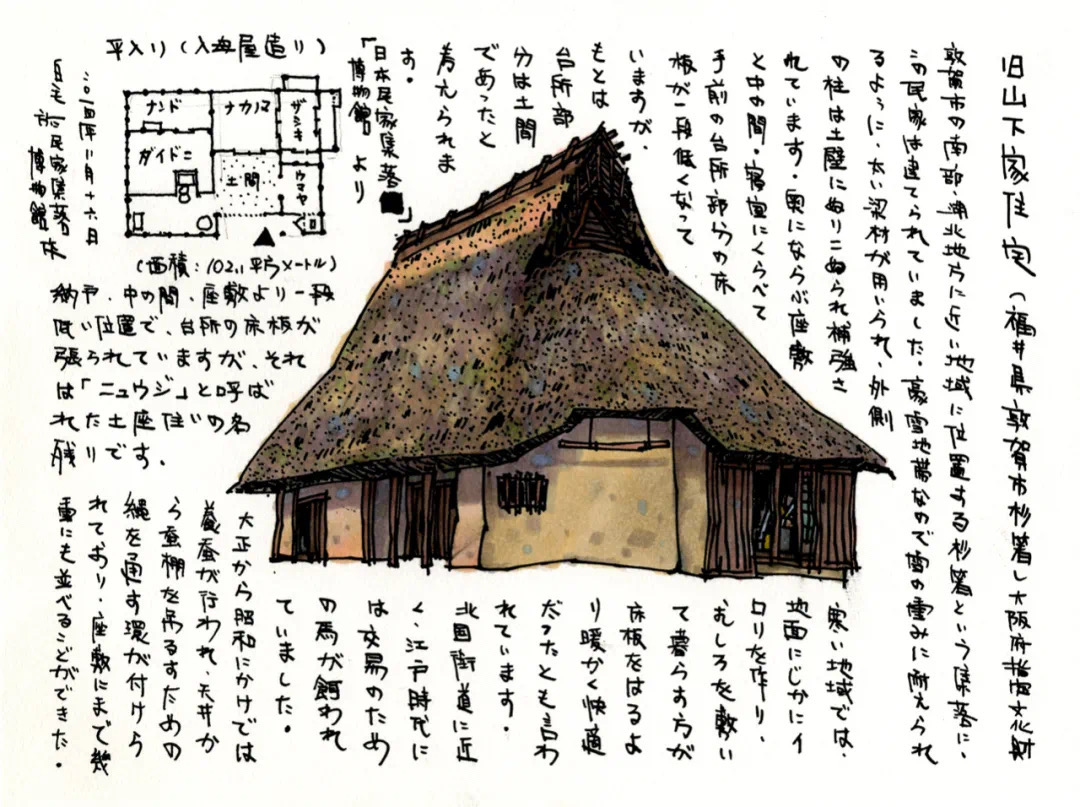 旧山下家住宅（福井県敦賀市杉箸）大阪府指定文化財
敦賀市の南部、湖北地方に近い地域に位置する杉箸という集落に、
この民家は建てられていました。豪雪地帯なので雪の重みに耐えられ
るように、太い梁材が用いられ、外側
の柱は土壁にぬりこめられ補強さ
れています。奥にならぶ座敷
と中の間・寝室にくらべて
手前の台所部分の床
板が一段低くなって
いますが、
もとは
台所部
分は土間
であったと
考えられま
す。
「日本民家集落
博物館」より
平入り（入母屋造り）
ナンド
ナカノマ
ザシキ
ダイドコ
土間
ウマヤ
(面積:102.11平方メートル)
二〇一四年二月十六日
日本民家集落
博物館
納戸、中の間、座敷より一段
低い位置で、台所の床板が
張られていますが、それ
は「ニュウジ」と呼ば
れた土座住いの名
残りです。
寒い地域では、
地面にじかにイ
ロリを作り、
むしろを敷い
て暮らす方が
床板をはるよ
り暖かく快適
だったとも言わ
れています。
北国街道に近
く、江戸時代に
は交易のため
の馬が飼われ
ていました。
大正から昭和にかけては
養蚕が行われ、天井か
ら蚕棚を吊るすための
縄を通す環が付けら
れており、座敷にまで幾
重にも並べることができた。